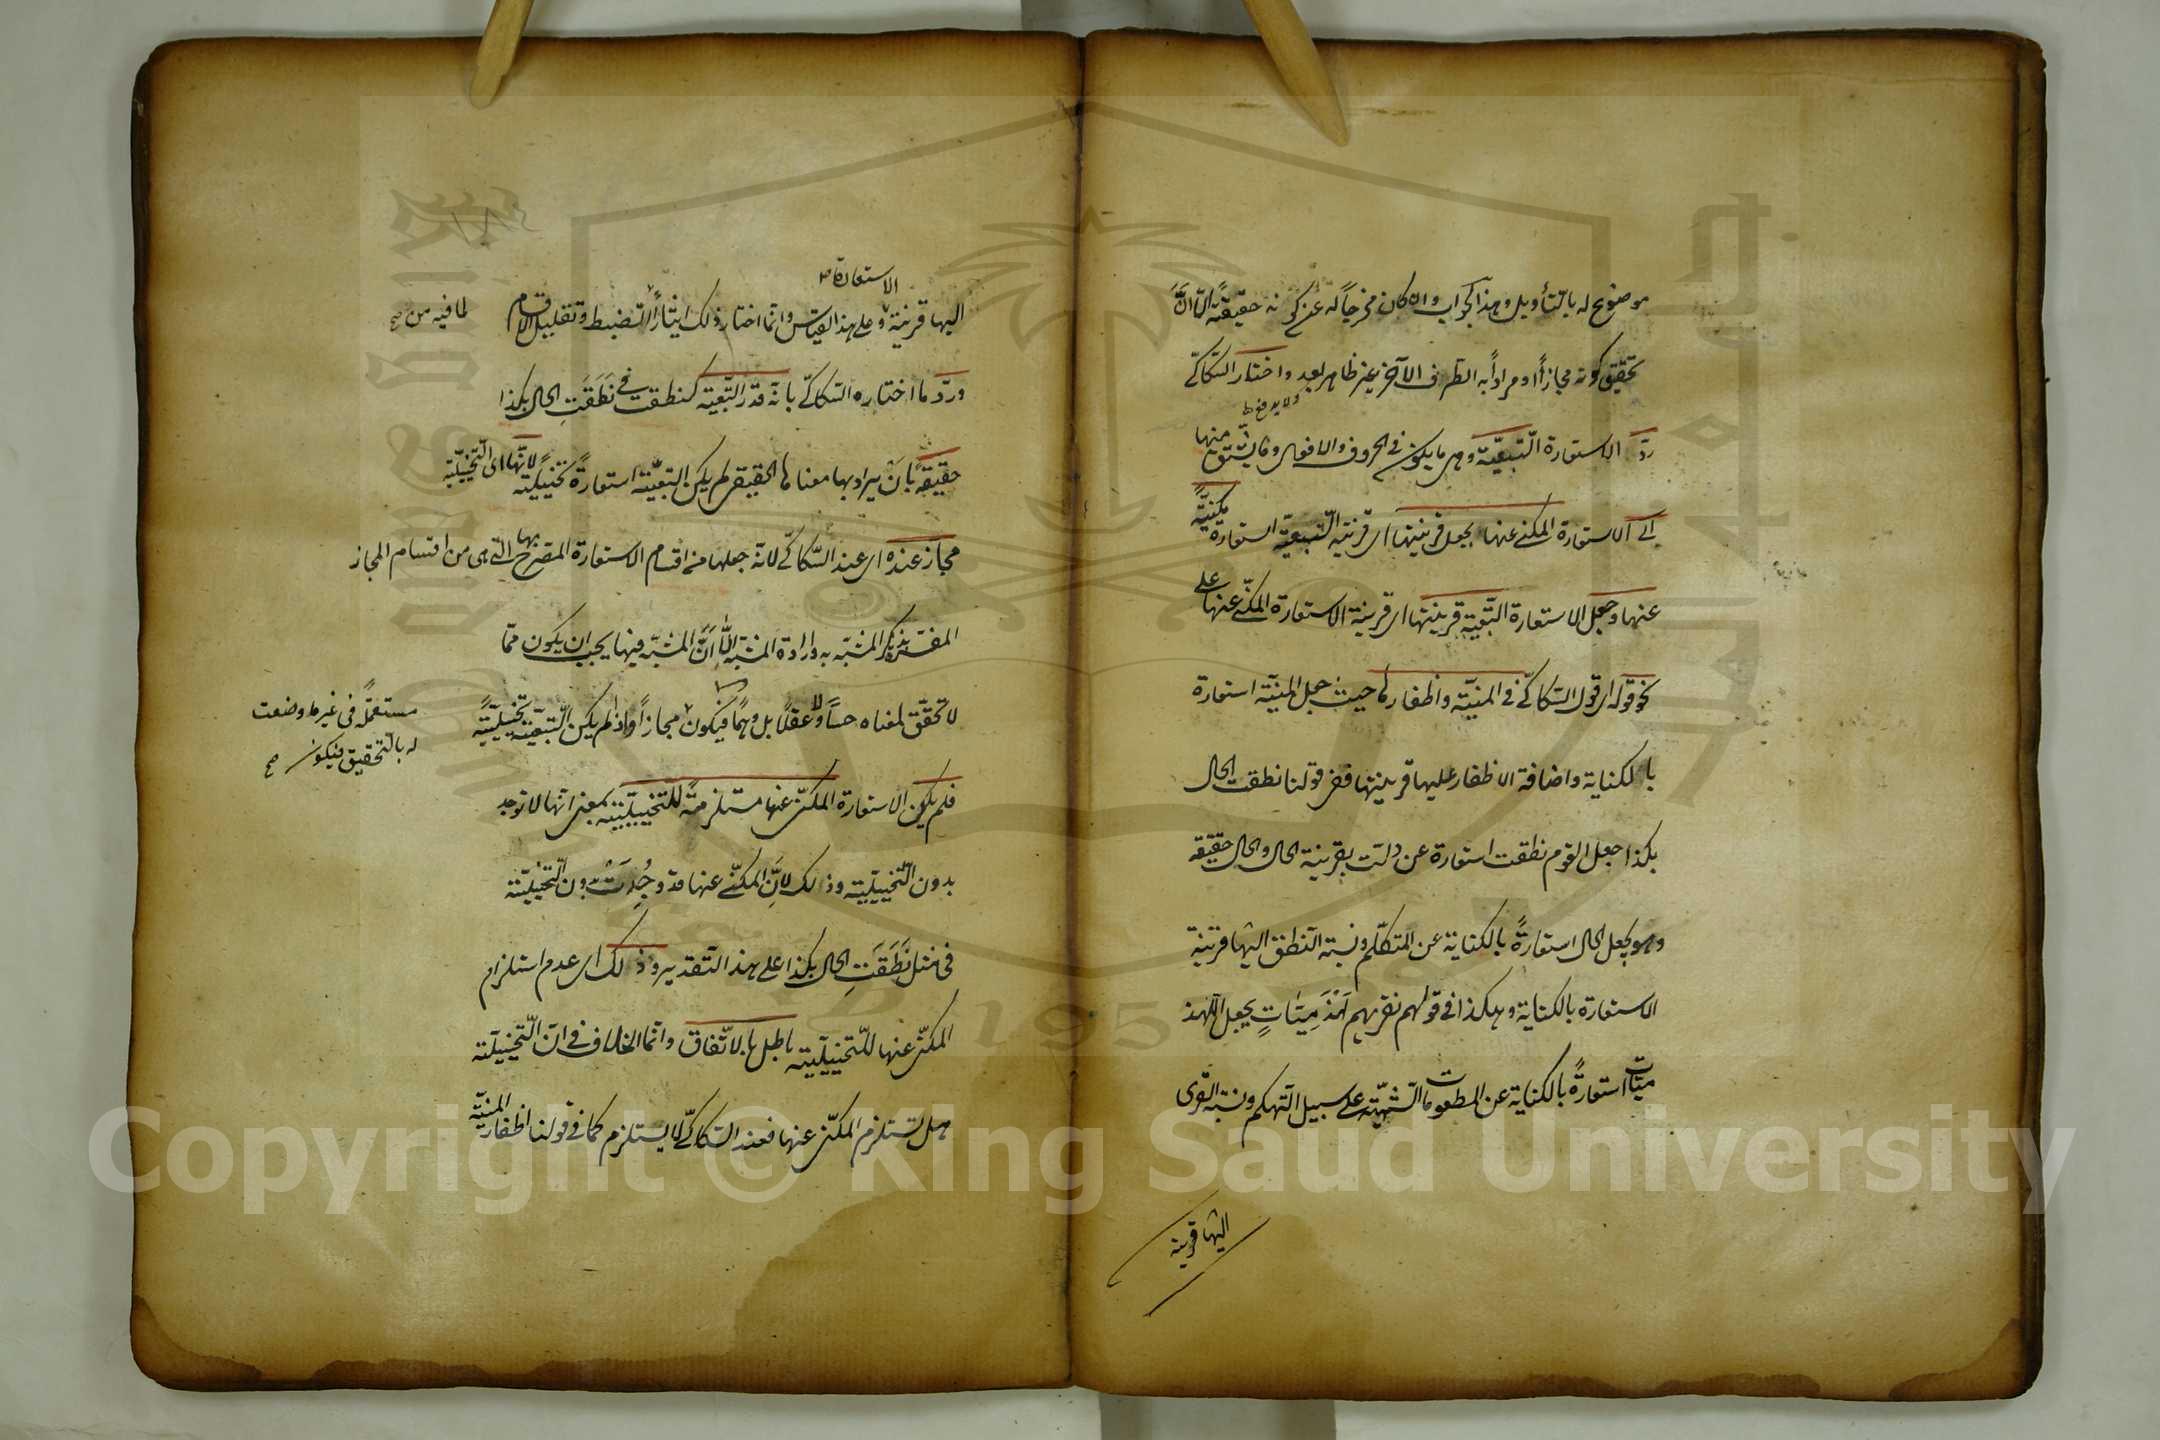 موضوع له بالتأويل وهذا الجواب وان كان مخرجاً له عن كونه حقيقة الا أنّ
تحقيق كونه مجازاً او مراداً به الطرف الآخر غير ظاهر بعد واختار السكاكي
ردّ الاستعارة التبعيّة وهى ما يكون في الحروف والافعال وما يشتق منها
الى الاستعارة المكنى عنها بجعل قرينتها اى قرينة التبعيّة استعارة مكنيّة
عنها وجعل الاستعارة التبعية قرينتها اى قرينة الاستعارة المكنّى عنها على
نحو قوله اى قول السكاكى فى المنيّة واظفارها حيث جعل المنيّة استعارة
بالكناية واضافة الاظفار عليها قرينتها ففى قولنا نطقت الحال
بكذا جعل القوم نطقت استعارة عن دلّت بقرينة الحال والحال حقيقة
وهو يجعل الحال استعارةً بالكناية عن المتكلّم ونسبة النطق اليها قرينة
الاستعارة بالكناية وهكذا فى قولهم نقريهم لهذميّات يجعل اللّهذ
ميّات استعارةً بالكناية عن المطعومات الشهيّة على سبيل التهكم ونسبة القرى
اليها قرينة
الاستعارة
اليها قرينة وعلى هذا القياس وانما اختار ذلك ايثاراً للضبط وتقليل الاقسام
لما فيه من صح
وردّ ما اختاره السّكاكّى بانّه قدّر التّبعيّة كنطقت فى نَطَقَتِ الحال بكذا
حقيقةً بأن يراد بها معناها الحقيقى لم يكن التبعيّة استعارةً تخييليّة لانّها اى التّخييليّة
مجاز عنده اى عند السّكاكّى لانّه جعلها من اقسام الاستعارة المصرّح بها الّتى هى من اقسام المجاز
المفسّر بذكر المشبّه به وارادة المشبّه الّا أنَّ المشبّه فيها يجب ان يكون ممّا
لا تحقّق لمعناه حسّاً ولا عقلاً بل وهمًا فيكون مجازاً واذا لم يكن التّبعيّة تخييليّةً
مستعملةً فى غير ما وضعت
له بالتحقيق فيكون صح
فلم يكن الاستعارة المكنّى عنها مستلزمةً للتّخييليّة بمعنى انّها لا توجد
بدون التّخييليّة وذلك لانّ المكنّى عنها قد وجُدِتْ بدون التّخييليّة
فى مثل نَطَقَتِ الحال بكذا على هذا التّقدير وذلك اى عدم استلزام
المكنّى عنها للتّخييليّة باطل بالاتّفاق وانّما الخلاف فى انّ التّخييليّة
هل تستلزم المكنّى عنها فعند السّكاكّى لا يستلزم كما فى قولنا اظفار المنيّة
Copyright © King Saud University